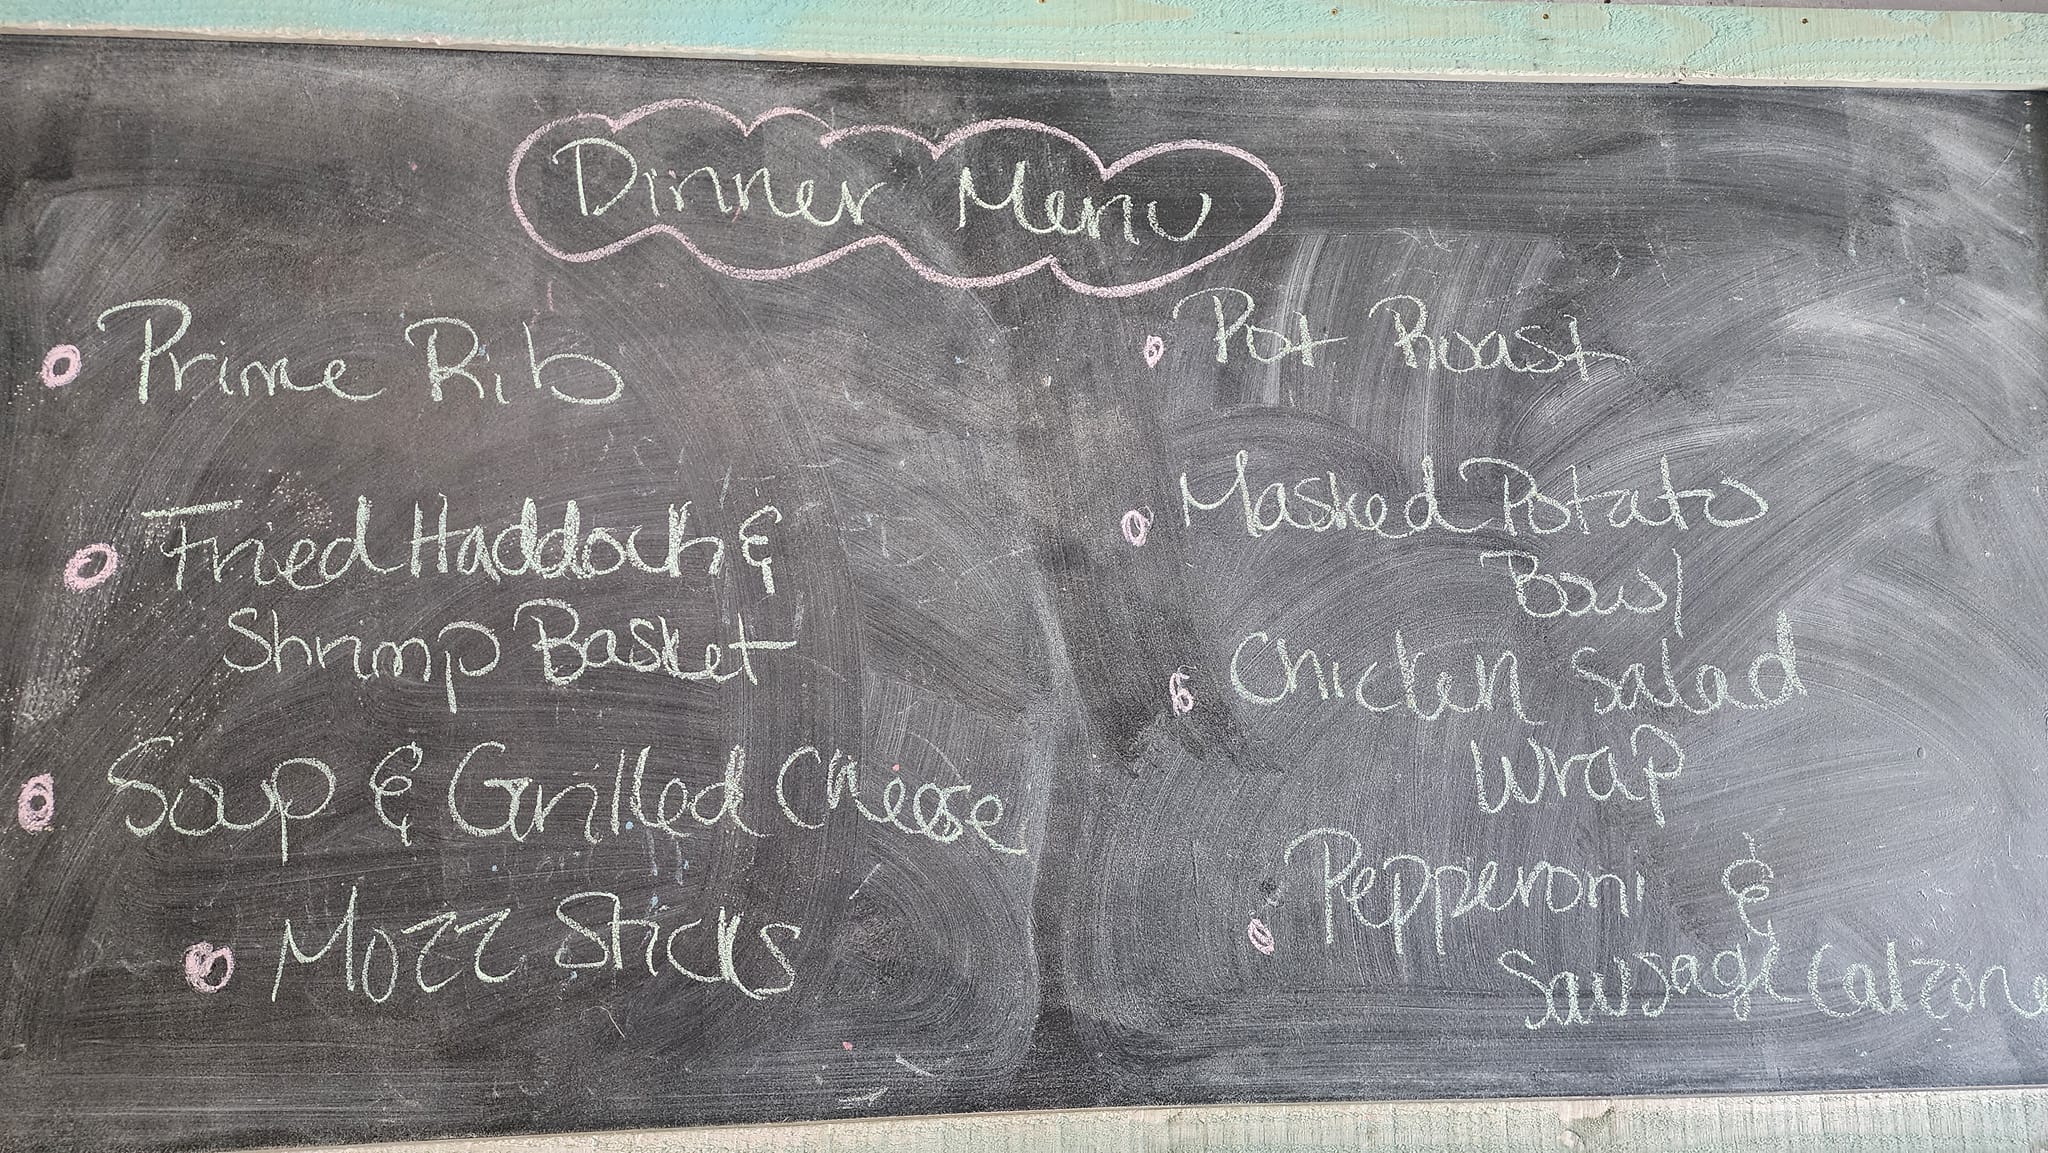 Dinner Menu
Prime Rib
Fried Haddock &
Shrimp Basket
Soup & Grilled Cheese
Mozz Sticks
Pot Roast
Mashed Potato
Bowl
Chicken Salad
Wrap
Pepperoni &
Sausage Calzone